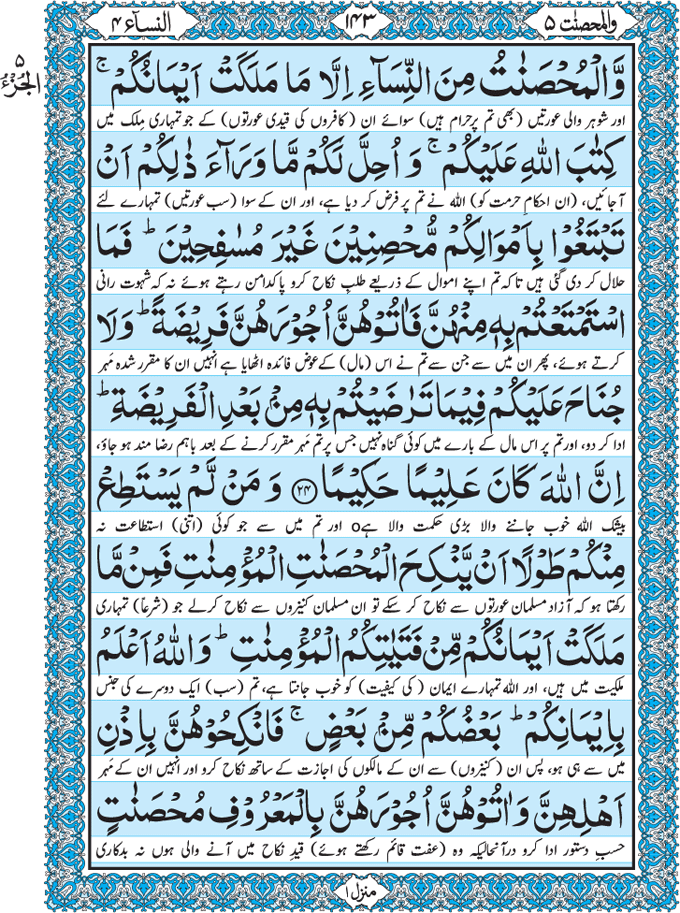 والمحصنت ۵
۱۴۳
النسآء ۴
۵
الجزء
وَّالْمُحْصَنٰتُ مِنَ النِّسَآءِ اِلَّا مَا مَلَكَتْ اَيْمَانُكُمْ ۚ
اور شوہر والی عورتیں (بھی تم پرحرام ہیں) سوائے ان (کافروں کی قیدی عورتوں) کے جو تمہاری مِلک میں
كِتٰبَ اللّٰهِ عَلَيْكُمْ ۚ وَ اُحِلَّ لَكُمْ مَّا وَرَآءَ ذٰلِكُمْ اَنْ
آجائیں، (ان احکامِ حرمت کو) اللہ نے تم پر فرض کر دیا ہے، اور ان کے سوا (سب عورتیں) تمہارے لئے
تَبْتَغُوْا بِاَمْوَالِكُمْ مُّحْصِنِيْنَ غَيْرَ مُسٰفِحِيْنَ ؕ فَمَا
حلال کر دی گئی ہیں تاکہ تم اپنے اموال کے ذریعے طلبِ نکاح کرو پاکدامن رہتے ہوئے نہ کہ شہوت رانی
اسْتَمْتَعْتُمْ بِهٖ مِنْهُنَّ فَاٰتُوْهُنَّ اُجُوْرَهُنَّ فَرِيْضَةً ؕ وَلَا
کرتے ہوئے، پھر ان میں سے جن سے تم نے اس (مال) کے عوض فائدہ اٹھایا ہے انہیں ان کا مقرر شدہ مَہر
جُنَاحَ عَلَيْكُمْ فِيْمَا تَرٰضَيْتُمْ بِهٖ مِنْۢ بَعْدِ الْفَرِيْضَةِ ؕ
ادا کر دو، اور تم پر اس مال کے بارے میں کوئی گناہ نہیں جس پر تم مَہر مقرر کرنے کے بعد باہم رضا مند ہو جاؤ،
اِنَّ اللّٰهَ كَانَ عَلِيْمًا حَكِيْمًا ۲۴ وَ مَنْ لَّمْ يَسْتَطِعْ
بیشک اللہ خوب جاننے والا بڑی حکمت والا ہےo اور تم میں سے جو کوئی (اتنی) استطاعت نہ
مِنْكُمْ طَوْلًا اَنْ يَّنْكِحَ الْمُحْصَنٰتِ الْمُؤْمِنٰتِ فَمِنْ مَّا
رکھتا ہو کہ آزاد مسلمان عورتوں سے نکاح کر سکے تو ان مسلمان کنیزوں سے نکاح کرلے جو (شرعاً) تمہاری
مَلَكَتْ اَيْمَانُكُمْ مِّنْ فَتَيٰتِكُمُ الْمُؤْمِنٰتِ ؕ وَاللّٰهُ اَعْلَمُ
ملکیت میں ہیں، اور اللہ تمہارے ایمان (کی کیفیت) کو خوب جانتا ہے، تم (سب) ایک دوسرے کی جنس
بِاِيْمَانِكُمْ ؕ بَعْضُكُمْ مِّنْۢ بَعْضٍ ۚ فَانْكِحُوْهُنَّ بِاِذْنِ
میں سے ہی ہو، پس ان (کنیزوں) سے ان کے مالکوں کی اجازت کے ساتھ نکاح کرو اور انہیں ان کے مَہر
اَهْلِهِنَّ وَاٰتُوْهُنَّ اُجُوْرَهُنَّ بِالْمَعْرُوْفِ مُحْصَنٰتٍ
حسبِ دستور ادا کرو درآنحالیکہ وہ (عفت قائم رکھتے ہوئے) قیدِ نکاح میں آنے والی ہوں نہ بدکاری
منزل ۱